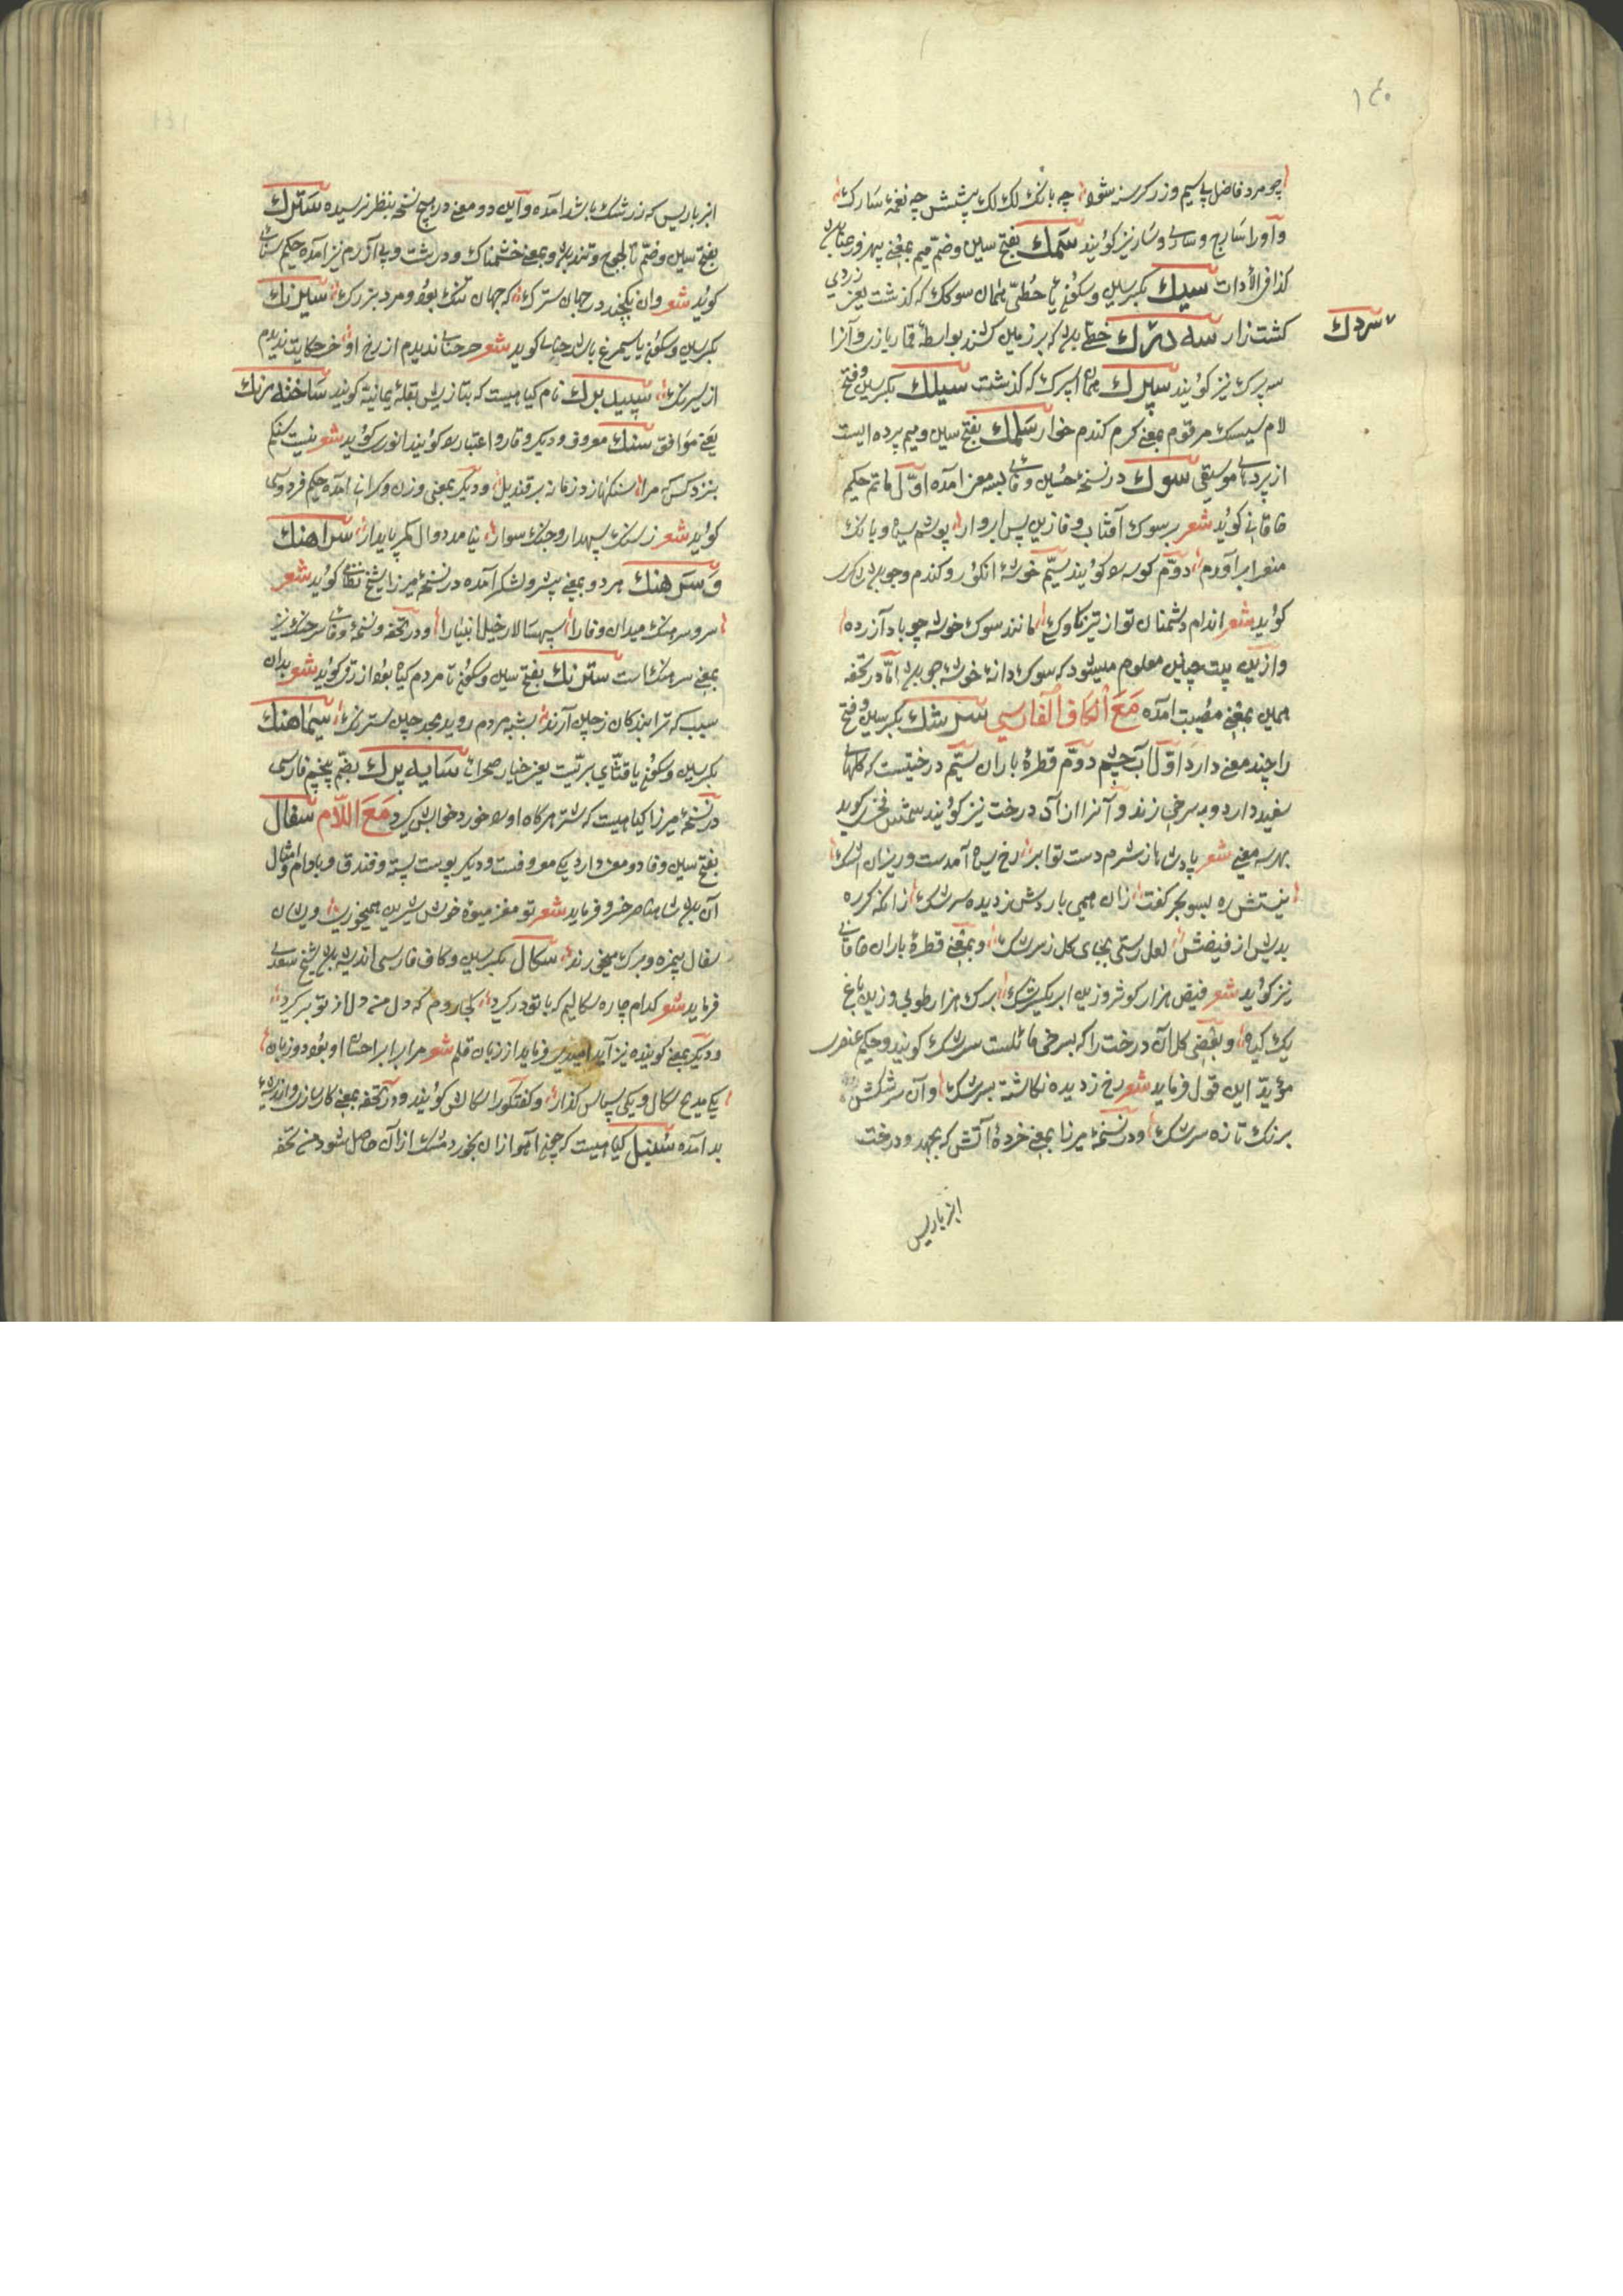 ١٤٠
چه مرد فاضل بی سیم و زر کرسنه شود چه بانک لک لک پیشش چه نغمهٔ سارک
و آورا سارج و ساری و سار نیز کویند سمک بفتح سین و ضمّ میم بمعنی
کذا فی الأدات سیک بکسر سین و سکون یاء حُطّی همان سوکک که کذشت یعنی زردی
کشت زار سه درک خطی باشد که بر زمین کشند بواسطهٔ قمار بازی و آنرا
سردک
سه پرک نیز کویند سپرک همان اسپرک که کذشت سیلک بکسر سین و فتح
لام سیسک مرقوم بمعنی کرم کندم خوار سلمک بفتح سین و میم پرده ایست
از پردهای موسیقی سوک در نسخهٔ حسین وفائی بسه معنی آمده اوّل ماتم حکیم
خاقانی کوید شعر بر سوک آفتاب وفا زین پس ابروار پوشم سیاه و بانک
معزا برآورم دوّم کوسه را کویند سیّم خوشهٔ انکور و کندم و جو باشد
کوید شعر اندام دشمنان تو از تیر ناوکی مانند سوک خوشهٔ جو باد آزده
و ازین بیت چنین معلوم میشود که سوک دانهٔ خوشهٔ جو باشد امّا در تحفه
همین بمعنی مصیبت آمده مَعَ الکاف الفارسی سرشک بکسر سین و فتح
را چند معنی دارد اوّل آب چشم دوّم قطرهٔ باران سیّم درختیست که کلهای
سفید دارد و بسرخی زند و آنرا ازاد درخت نیز کویند شمس فخری کوید
بهر سه معنی شعر پادشاها ز شرم دست تو ابر رخ سیاه آمدست و ریزان اشک
نیستش ره بسوی بحر کفت زان همی باردش ز دیده سرشک زانکه کر ره
بدیش از فیضش لعل رستی بجای کل ز سرشک و بمعنی قطرهٔ باران خاقانی
نیز کوید شعر فیض هزار کوثر و زین ابر یک سرشک برک هزار طوبی و زین باغ
یک کیاه و بعضی کل آن درخت را که بسرخی مائلست سرشک کویند و حکیم عنصری
مؤیّد این قول فرماید شعر رخ ز دیده نکاشته بسرشک وآن سرشکش
برنک تازه سرشک و در نسخهٔ میرزا بمعنی خردهٔ آتش که بجهد و درخت
انبرباریس
انبرباریس که زرشک باشد آمده و این دو معنی در هیچ نسخه بنظر نرسیده سترک
بفتح سین و ضمّ تا لجوج و تند باشد و بمعنی خشمناک و درشت و بی آزرم نیز آمده حکیم سنائی
کوید شعر وان نکنجد در جهان سترک که جهان تنک بود و مرد بزرک سیرنک
بکسر سین و سکون یا سیمرغ باشد چنانکه کوید شعر جز خیالی ندیدم از رخ او جز حکایت ندیدم
از سیرنک سپید برک نام کیاهیست که بتازیش بقلهٔ یمانیه کویند ساخته رنک
یعنی موافق سنک معروف و دیکر وقار و اعتبار را کویند انوری کوید شعر نیست سنکم
بنزد کس که مرا سنکها زد زمانه بر قندیل و دیکر بمعنی وزن و کرانی آمده حکیم فردوسی
کوید شعر ز سنک سپهدار و جنک سوار نیامد دوال کمر پایدار سراهنک
و سرهنک هردو بمعنی پیشرو لشکر آمده در نسخهٔ میرزا شیخ نظامی کوید شعر
سر و سرهنک میدان وفا را سپهسالار خیل انبیا را و در تحفه و نسخهٔ وفائی سرهنک نیز
بمعنی سرهنک است سترنک بفتح سین و سکون تا مردم کیاه بود ازرقی کوید شعر بدان
سبب که ترا بندکان ز چین آرند بشبه مردم روید بحد چین سترنک سیماهنک
بکسر سین و سکون یا قثّای برّیست یعنی خیار صحرائی سایبه برک بضم پنجم فارسی
در نسخهٔ میرزا کیاهیست که شتر هرکاه او را خورد خوابش کیرد مَعَ اللّام سفال
بفتح سین و فا دو معنی دارد یکی معروفست و دیکر پوست پسته و فندق و بادام و امثال
آن باشد شاه ناصر خسرو فرماید شعر تو مغز میوهٔ خوش و شیرین همیخوری وایشان
سفال بیمزه و برک میخورند سکال بکسر سین و کاف فارسی اندیشه باشد شیخ سعدی
فرماید شعر کدام چاره سکالم که با تو درکیرد کجا روم که دل من دل از تو برکیرد
و دیکر بمعنی کوینده نیز آید امیدی فرماید از زبان قلم شعر مرا برابر احسان او بود دو زبان
یکی مدیح سکال و یکی سپاس کذار و کفتکو را سکالش کویند و در تحفه بمعنی کارسازی و اندیشهٔ
بد آمده سُنبل کیاهیست که چون آهو ازان بخورد مشک ازان حاصل شود من تحفه